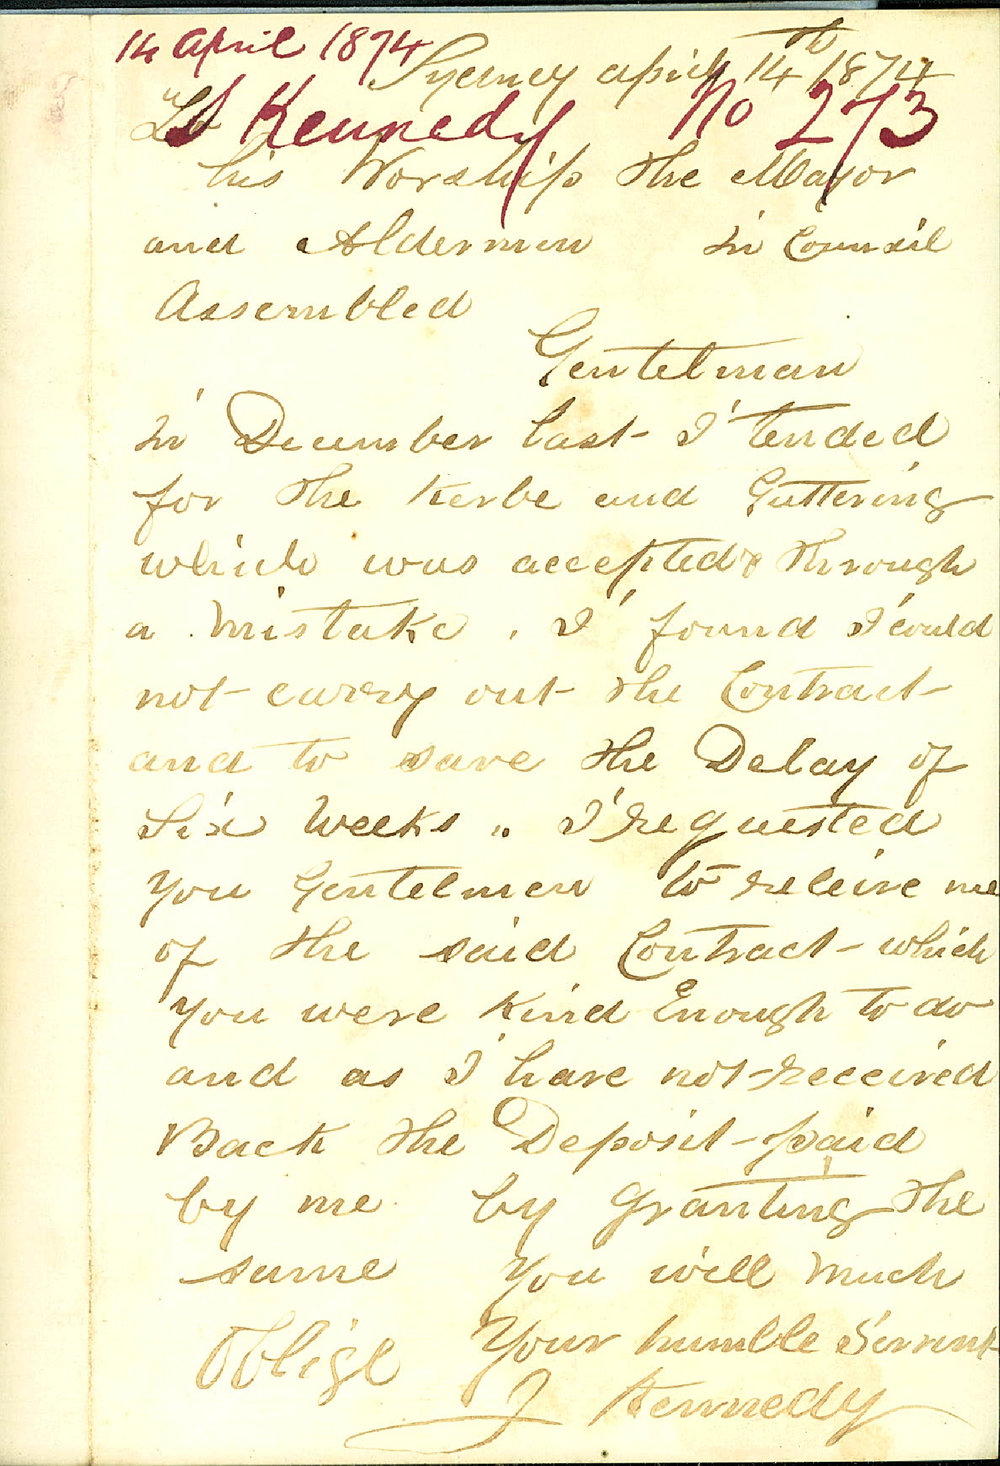 14 April 1874
Sydney April 14th 1874
J Kennedy No 273
To
his Worship the Mayor
and Aldermen in Council
Assembled
Gentelman
in December last I tended
for the Kerbe and Guttering
which was accepted & through
a mistake. I found I could
not carry out the Contract
and to save the Delay of
Six Weeks .. I requested
You Gentelmen to releive me
of the said Contract which
You were Kind Enough to do
and as I have not received
Back the Deposit paid
by me by granting the
same You will much
Oblige Your humble Servent
J Kennedy